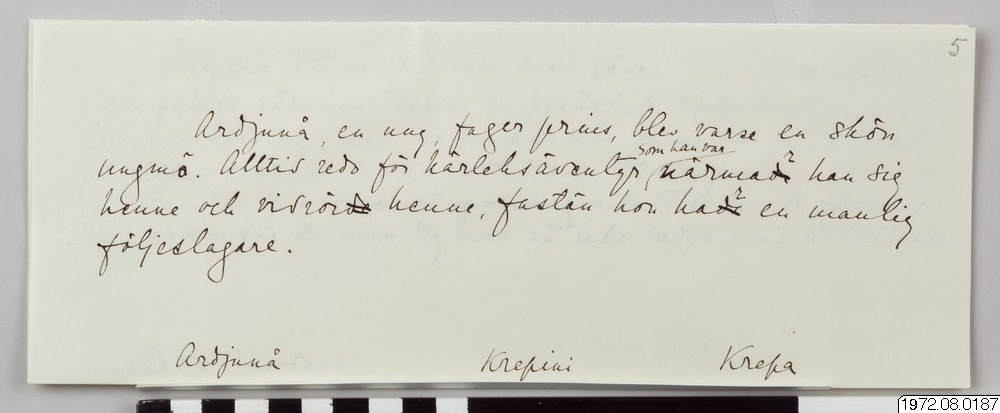 5
Ardjunå, en ung, fager prins, blev varse en skön
som han var
ungmö. Alltid redo för kärleksäventyr, närmade han sig
henne och vidrörde henne, fastän hon hade en manlig
följeslagare.
Ardjunå Krepini Krepa
1972.08.0187